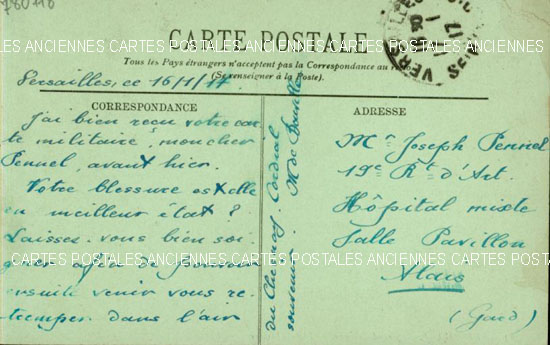 780118
CARTE POSTALE
Tous les Pays étrangers n'acceptent pas la Correspondance au recto
(Se renseigner à la Poste).
Versailles, ce 16/1/17
CORRESPONDANCE
J'ai bien reçu votre car
te militaire, mon cher
Pennel, avant hier.
Votre blessure est elle
en meilleur état ?
Laissez-vous bien soi
gner afin de pouvoir
ensuite venir vous re-
tremper dans l'air
du Chesnay. Cordial
souvenir. M de
ADRESSE
Mr Joseph Pennel
19e Rt d'Art.
Hôpital mixte
Salle Pavillon
Alais
(Gard)
VERSAILLES
17
CARTES POSTALES ANCIENNES CARTES POSTALES ANCIENNES CARTES POSTALES ANCIENNES
CARTES POSTALES ANCIENNES CARTES POSTALES ANCIENNES CARTES POSTALES ANCIENNES